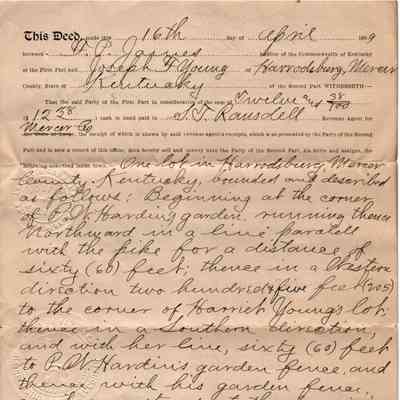 This Deed, made this 16th day of April 1889
between
of the Commonwealth of Kentucky
of the First Part and Joseph F. Young of Harrodsburg, Mercer
County, State of Kentucky of the Second Part WITNESSETH—
That the said Party of the First Part in consideration of the sum of Twelve and 38/100
$12 38 cash in hand paid to Ransdell Revenue Agent for
Mercer Co the receipt of which is shown by said revenue agent's receipts, which is as presented by the Party of the Second
Part and is now a record of this office, does hereby sell and convey unto the Party of the Second Part, his heirs and assigns, the
following described town One lot in Harrodsburg, Mercer
County Kentucky, bounded and described
as follows: Beginning at the corner
of P. W. Hardin's garden, running thence
Northward in a line paralell
with the pike for a distance of
sixty (60) feet; thence in a Western
direction two hundred & five feet (205)
to the corner of Harriet Young's lot;
thence in a Southern direction,
and with her line, sixty (60) feet
to P. W. Hardin's garden fence, and
thence with his garden fence,